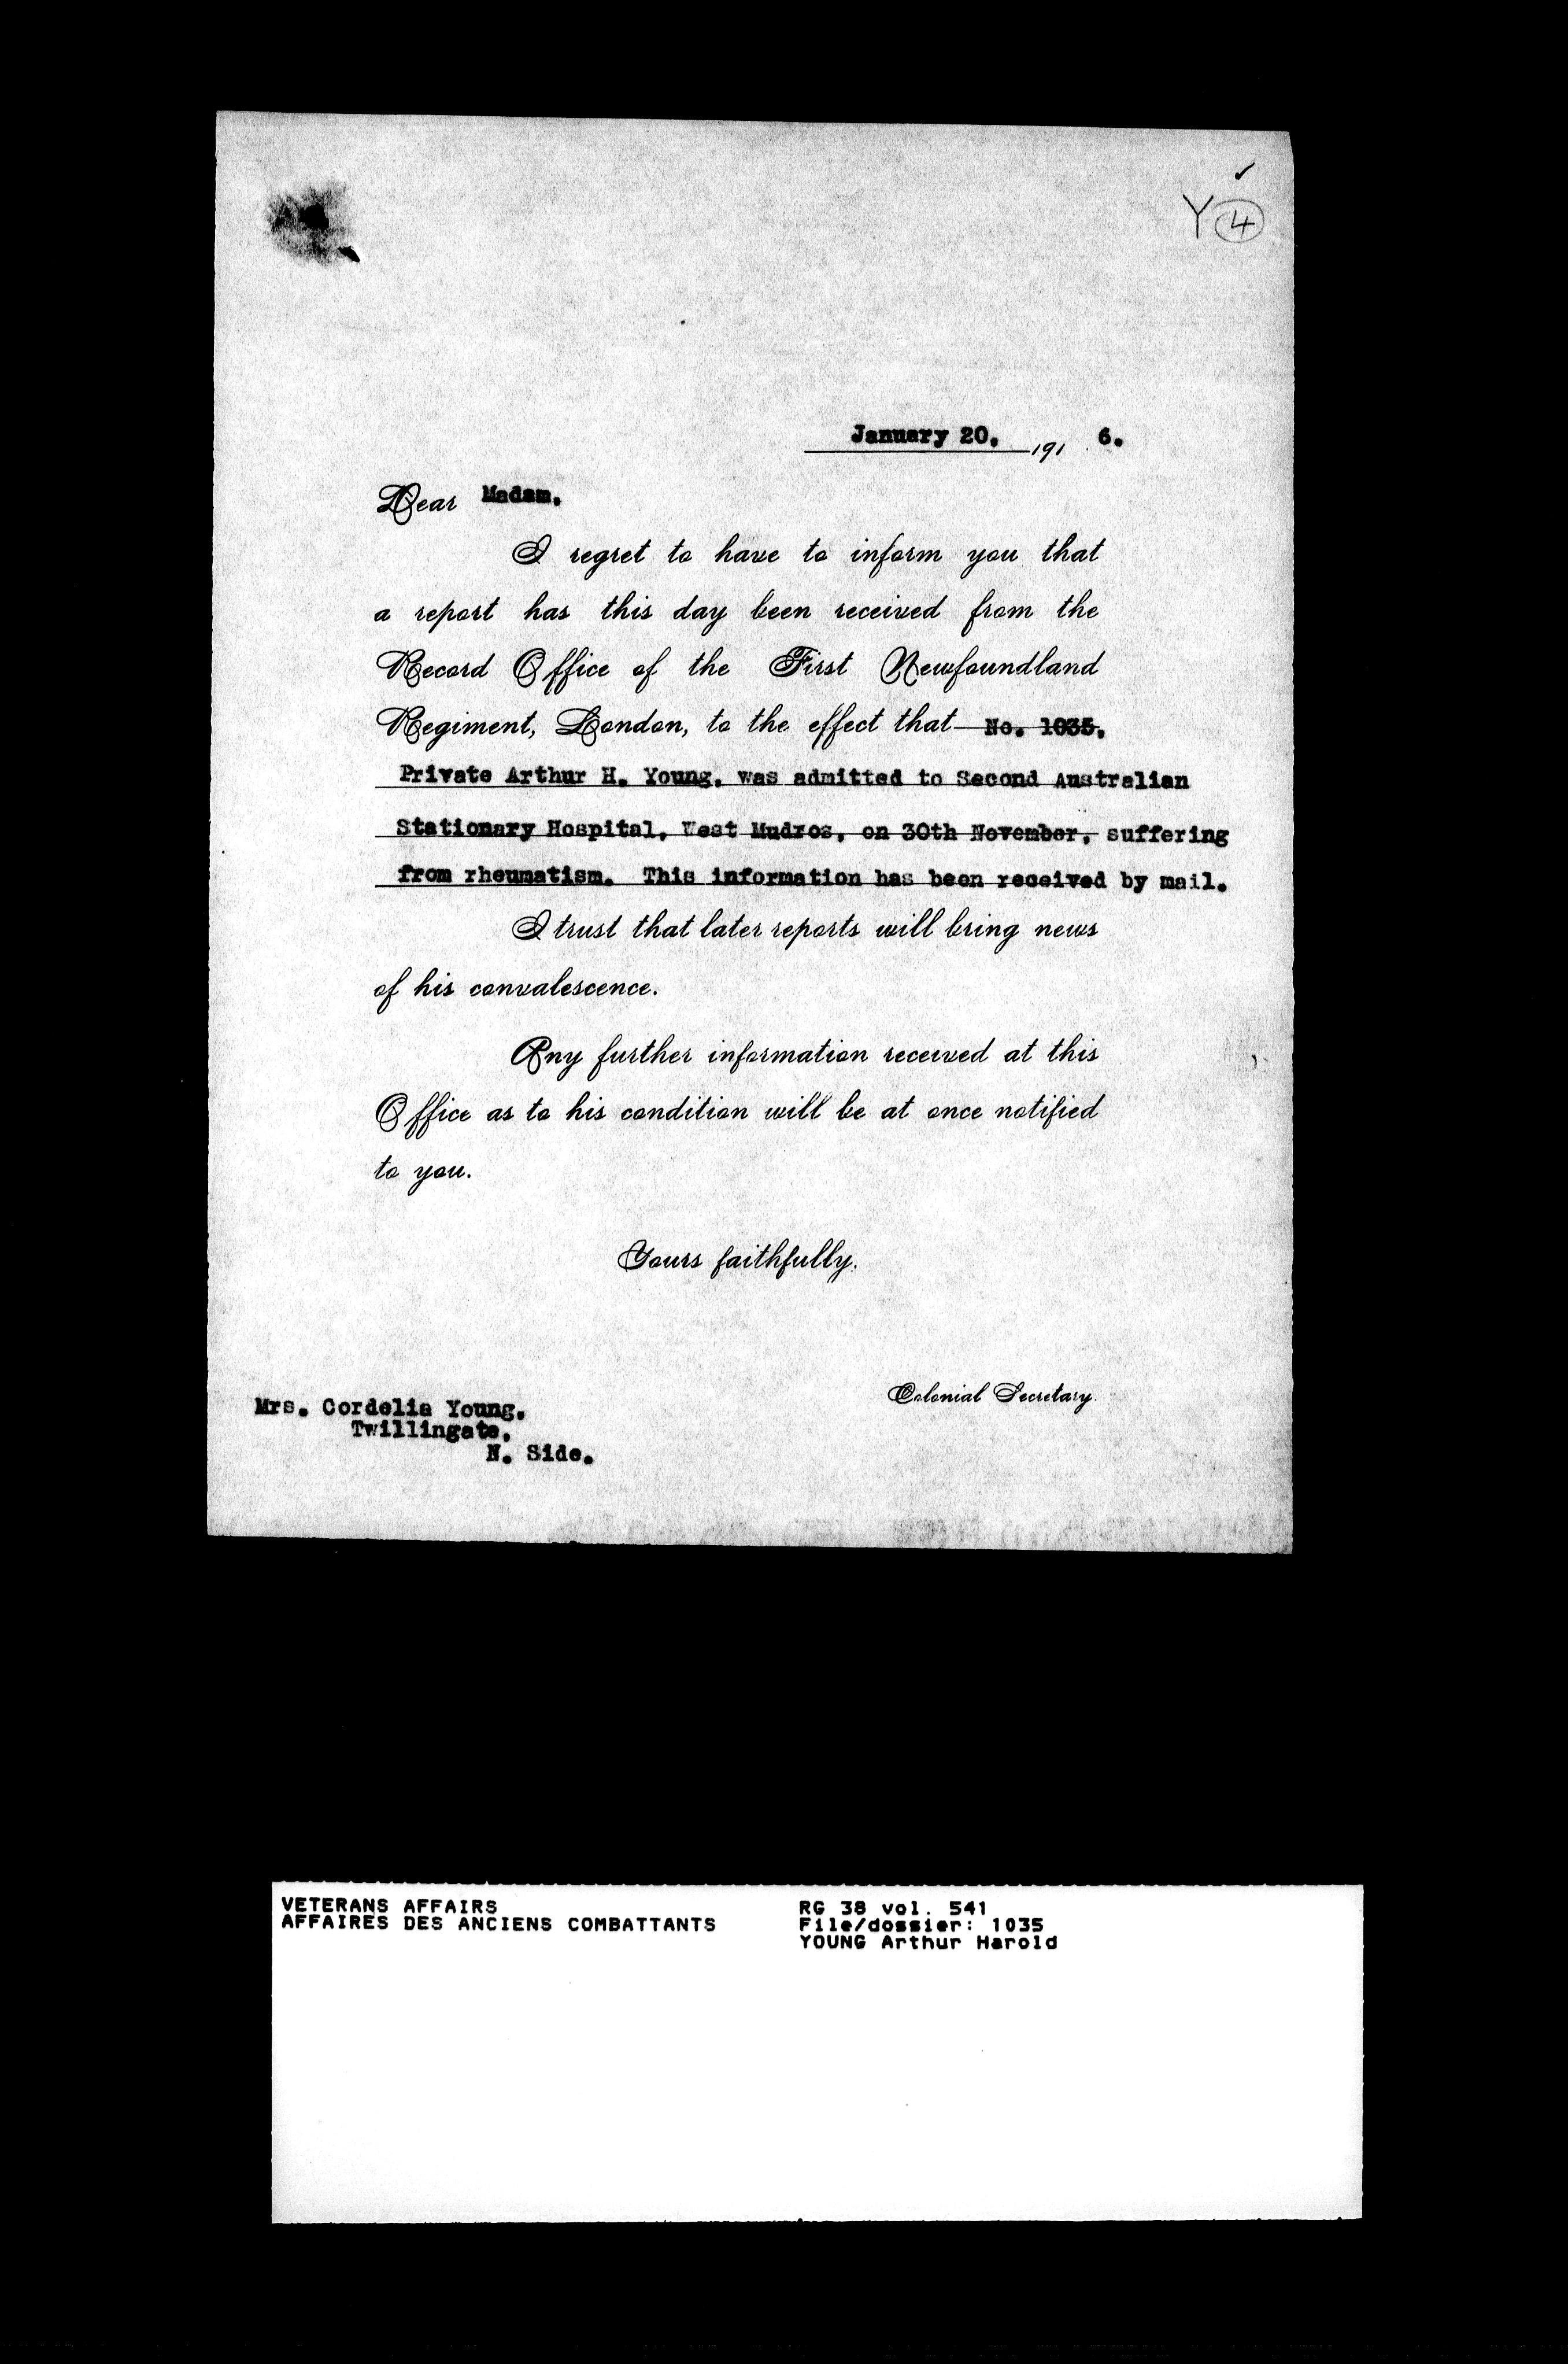 ✓
Y 4
January 20, 191 6.
Dear Madam,
I regret to have to inform you that
a report has this day been received from the
Record Office of the First Newfoundland
Regiment, London, to the effect that No. 1035,
Private Arthur H. Young, was admitted to Second Australian
Stationary Hospital, West Mudros, on 30th November, suffering
from rheumatism. This information has been received by mail.
I trust that later reports will bring news
of his convalescence.
Any further information received at this
Office as to his condition will be at once notified
to you.
Yours faithfully,
Colonial Secretary.
Mrs. Cordelia Young,
Twillingate,
N. Side.
VETERANS AFFAIRS RG 38 vol. 541
AFFAIRES DES ANCIENS COMBATTANTS File/dossier: 1035
YOUNG Arthur Harold